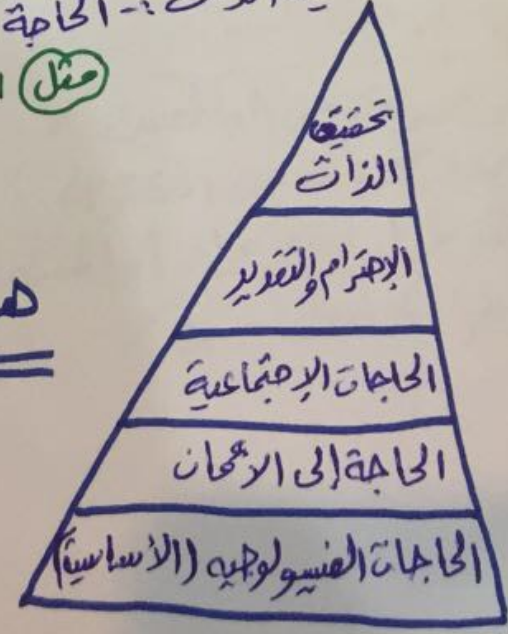 الحاجة
مثل
تحقيق
الذات
الإحترام والتقدير
الحاجات الإجتماعية
الحاجة إلى الأمان
الحاجات الفسيولوجيه (الأساسية)